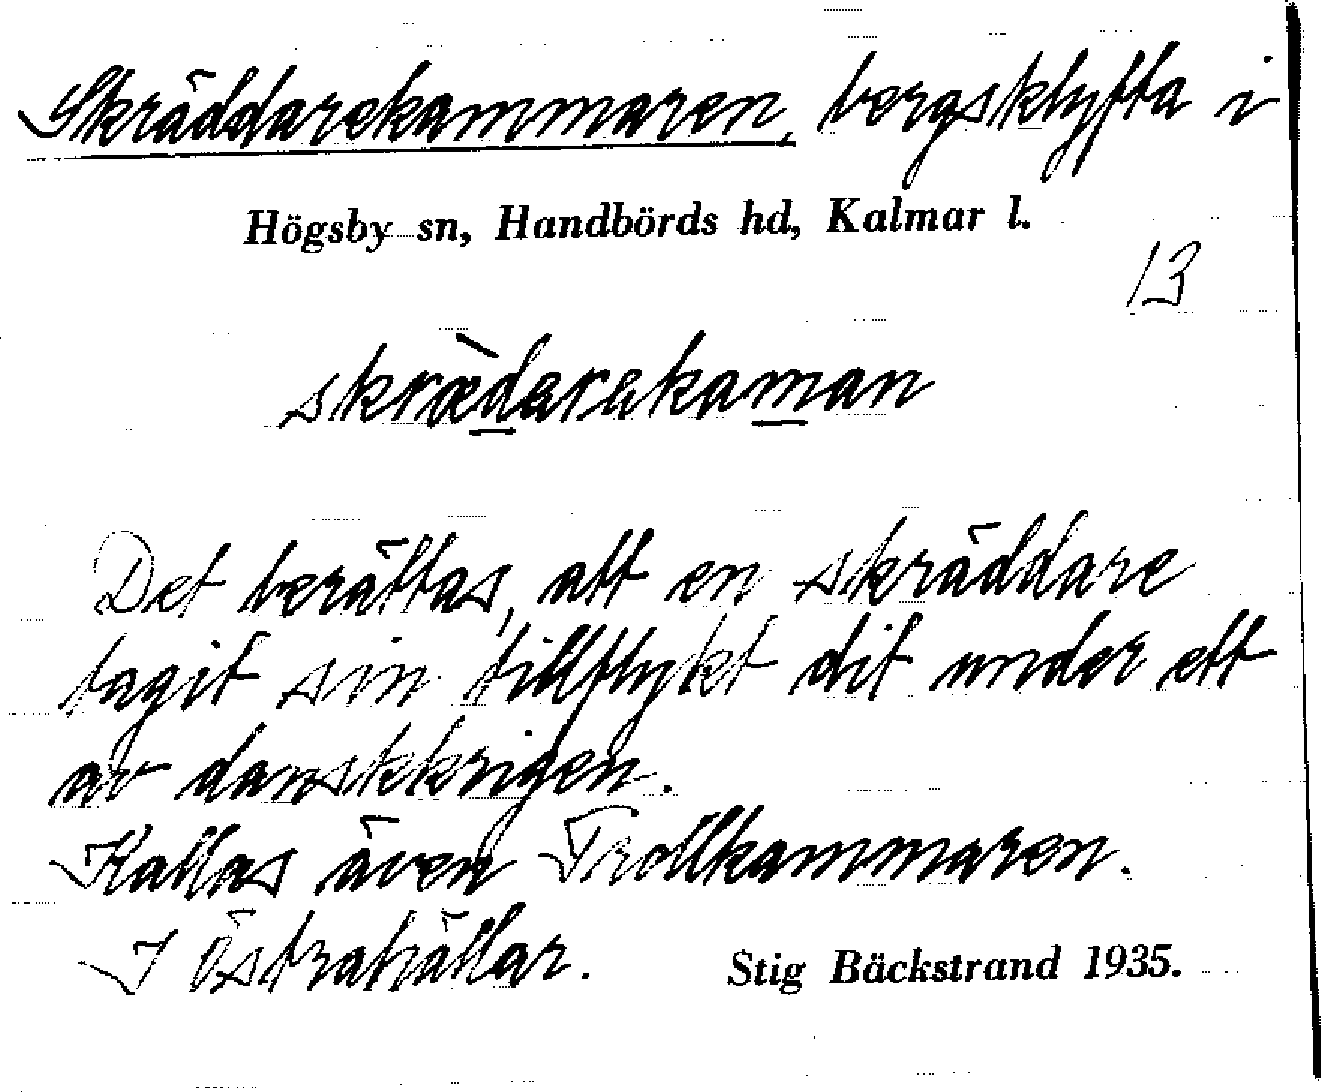 Skräddarekammaren, bergsklyfta i
Högsby sn, Handbörds hd, Kalmar l.
13
skræ̀darekaman
Det berättas, att en skräddare
tagit sin tillflykt dit under ett
av danskkrigen.
Kallas även Trollkammaren.
I Östrahällar.
Stig Bäckstrand 1935.